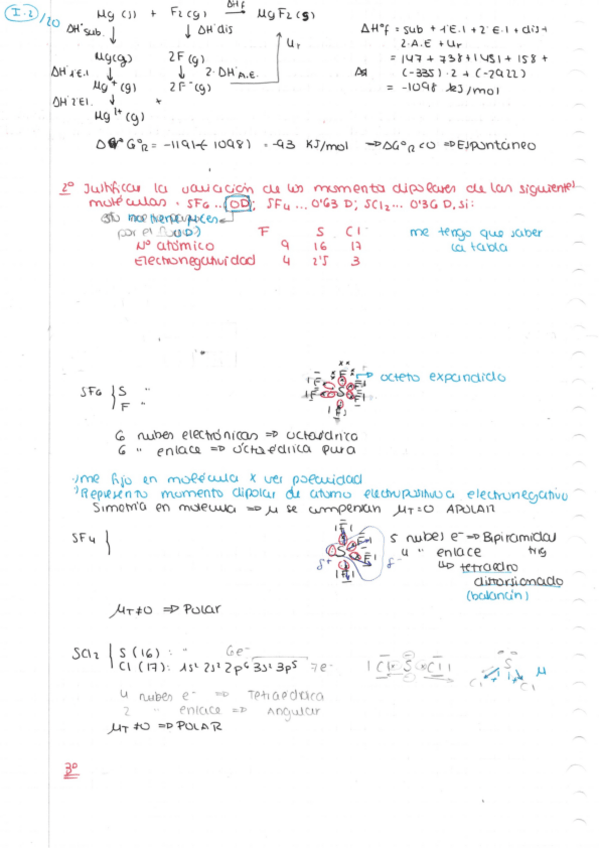 I.2/20
Mg (s) + F2(g) ΔHf→ MgF2(s)
ΔH°sub. ↓ ↓ ΔH°dis
Mg(g) 2F(g) Ur
ΔH°1E.I ↓ ↓ 2·ΔH°A.E.
Mg+(g) 2F-(g)
ΔH°2E.I ↓ +
(g)
ΔH°f = sub + 1E.I + 2E.I + dis +
2·A.E + Ur
= 147 + 738 + 1451 + 158 +
(-335)·2 + (-2922)
= -1098 kJ/mol
ΔG°R = -1191-(-1098) = -93 KJ/mol ⇒ ΔG°R<0 ⇒ Espontáneo
2º Justificar la variación de los momento dipolares de las siguientes
moléculas · SF6 ... 0D; SF4 ... 0'63 D; SCl2 ... 0'36 D, si:
por el
F S Cl
Nº atómico 9 16 17
Electronegatividad 4 2'5 3
me tengo que saber
la tabla
SF6 { S "
F "
octeto expandido
6 nubes electrónicas ⇒ octaédrica
6 " enlace ⇒ octaédrica pura
me fijo en molécula x ver polaridad
Represento momento dipolar de atomo electropositivo a electronegativo
Simetría en molecula ⇒ μ se compensan μT=0 APOLAR
SF4 {
5 nubes e- ⇒ Bipiramidal
4 " enlace trig
⇒ tetraedro
distorsionado
(balancín)
δ+ δ-
μT≠0 ⇒ Polar
SCl2 { S (16) : " 6e-
Cl (17): 1s² 2s² 2p⁶ 3s² 3p⁵ 7e-
|Cl - S - Cl|
S
Cl Cl
μ
4 nubes e- ⇒ Tetraédrica
2 " enlace ⇒ Angular
μT≠0 ⇒ POLAR
3º